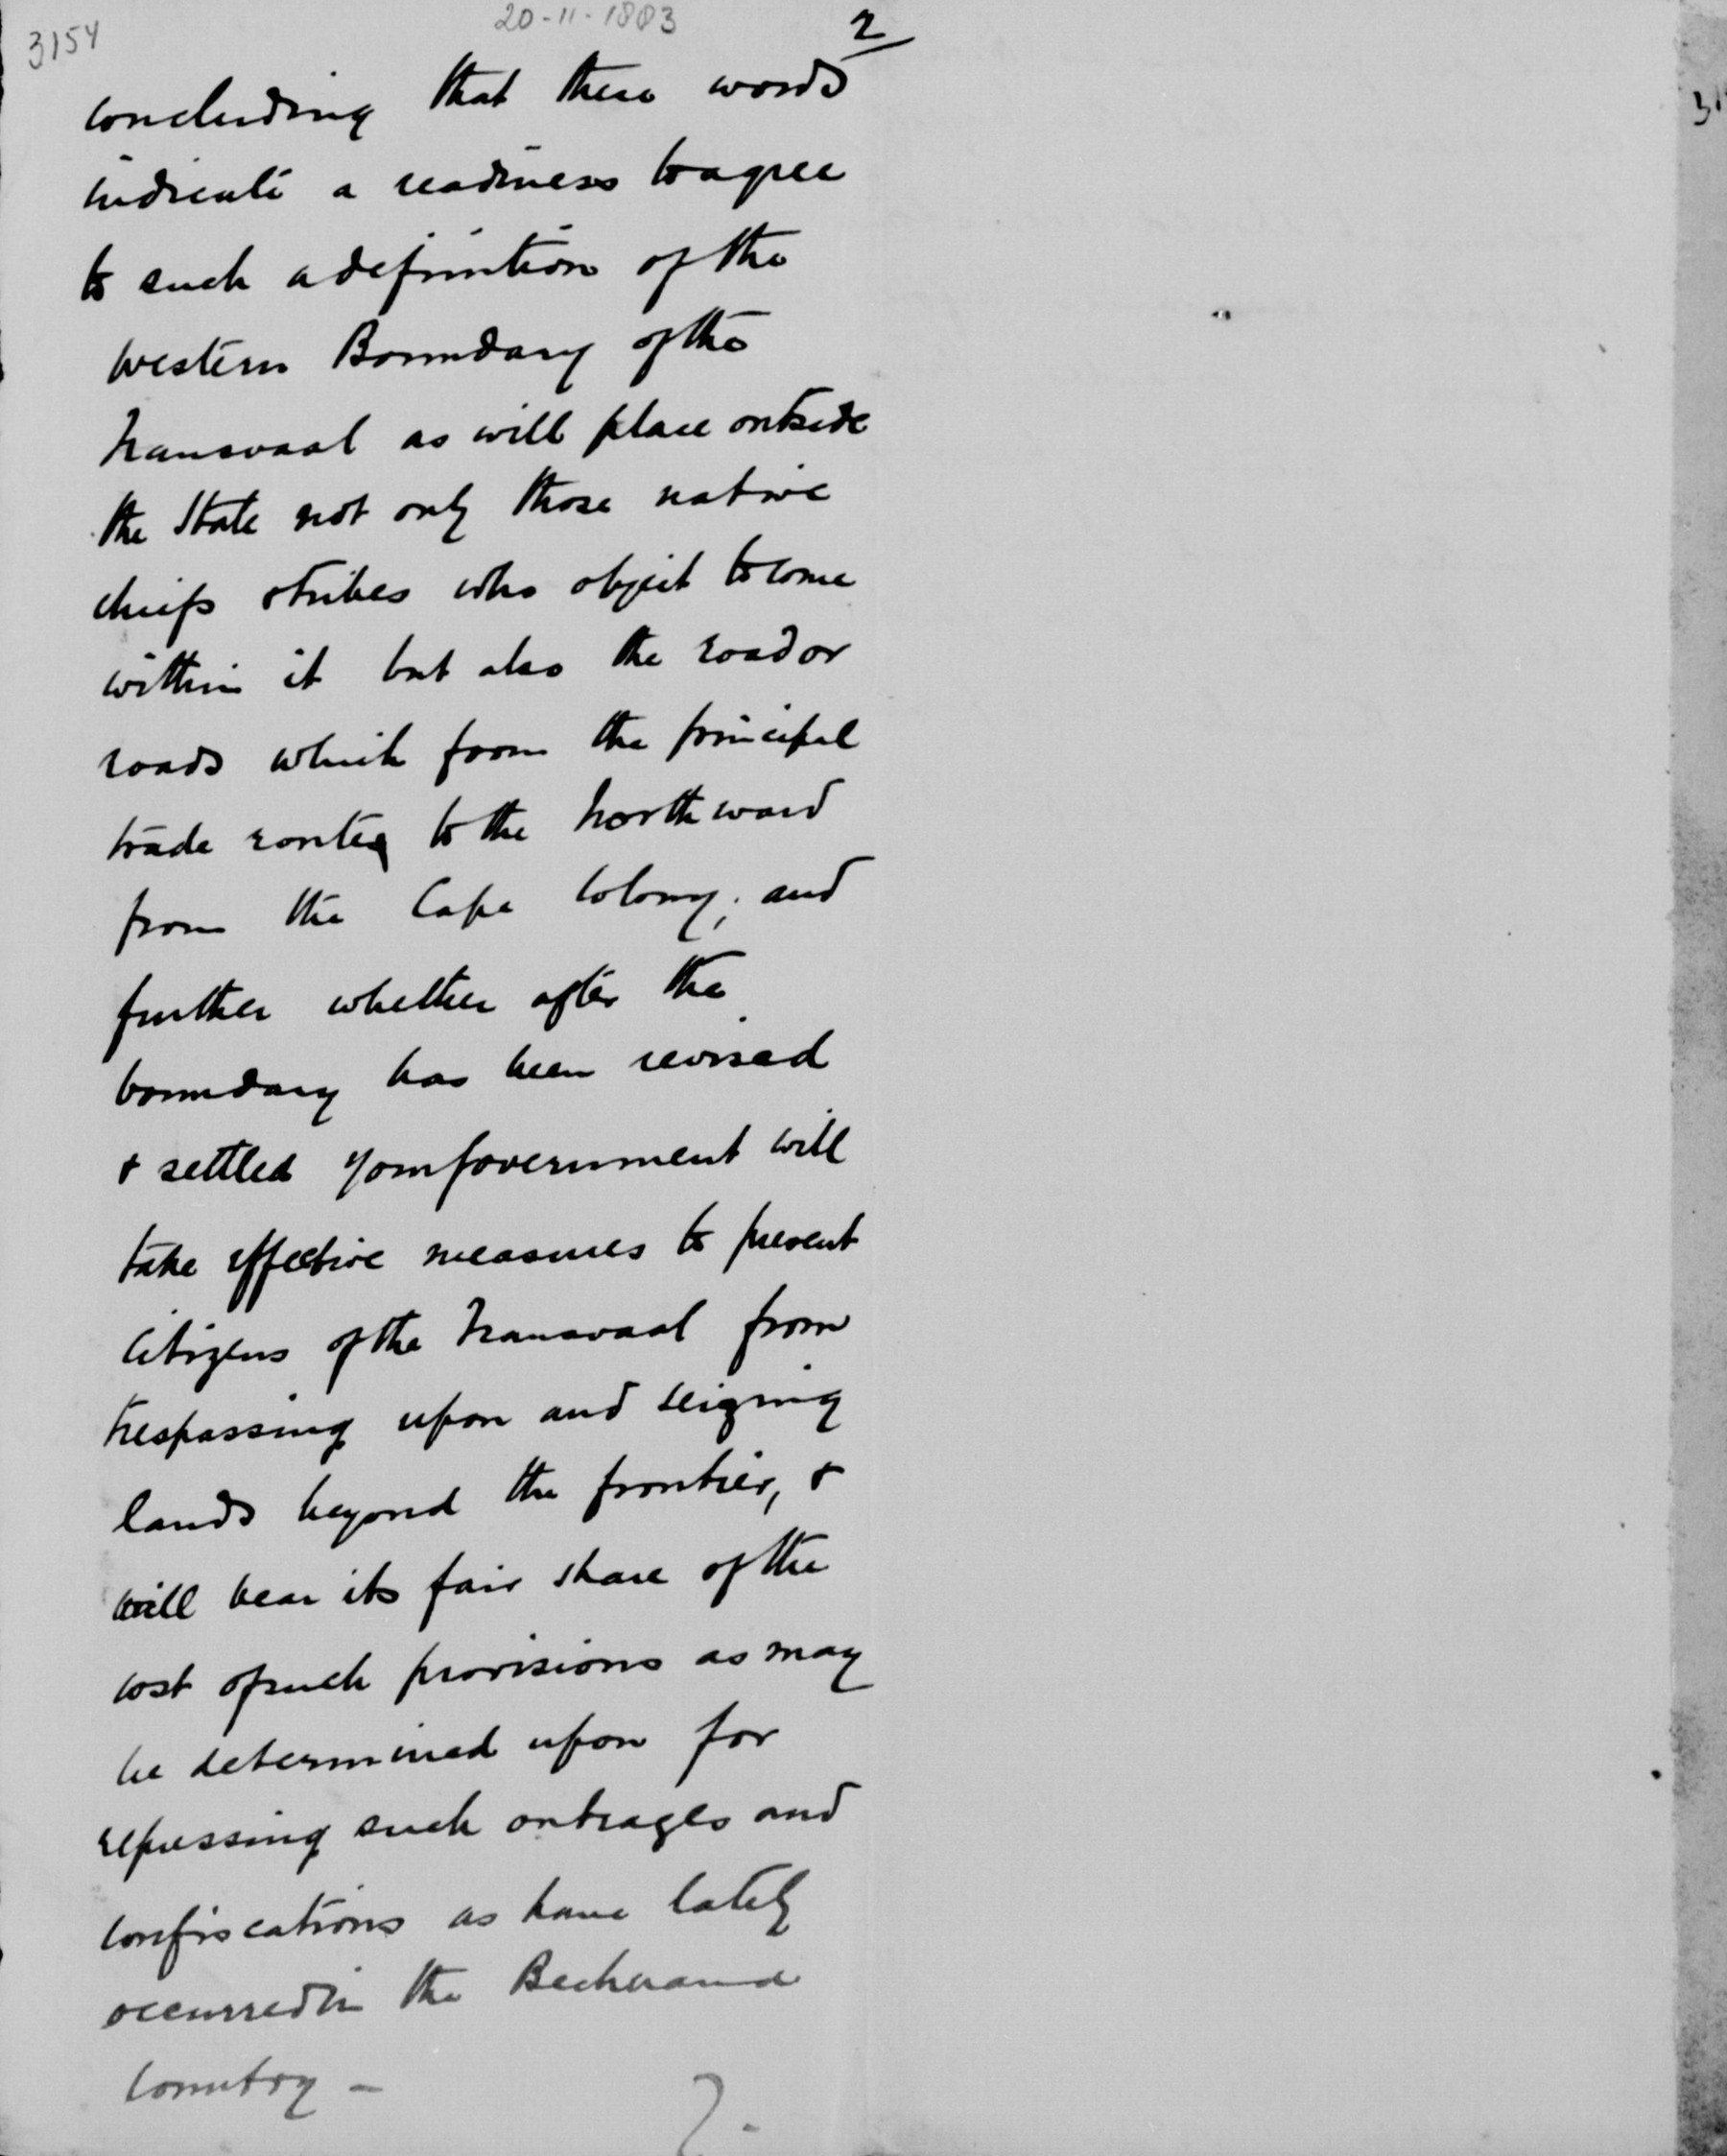 3154
20-11-1883
2
concluding that these words
indicate a readiness to agree
to such a definition of the
Western Boundary of the
Transvaal as will place outside
the State not only those native
chiefs & tribes who object to come
within it but also the road or
roads which form the principal
trade routes to the Northward
from the Cape Colony; and
further whether after the
boundary has been revised
& settled your Government will
take effective measures to prevent
Citizens of the Transvaal from
trespassing upon and seizing
lands beyond the frontier, &
will bear its fair share of the
cost of such provisions as may
be determined upon for
repressing such outrages and
confiscations as have lately
occurred in the Bechuana
Country –